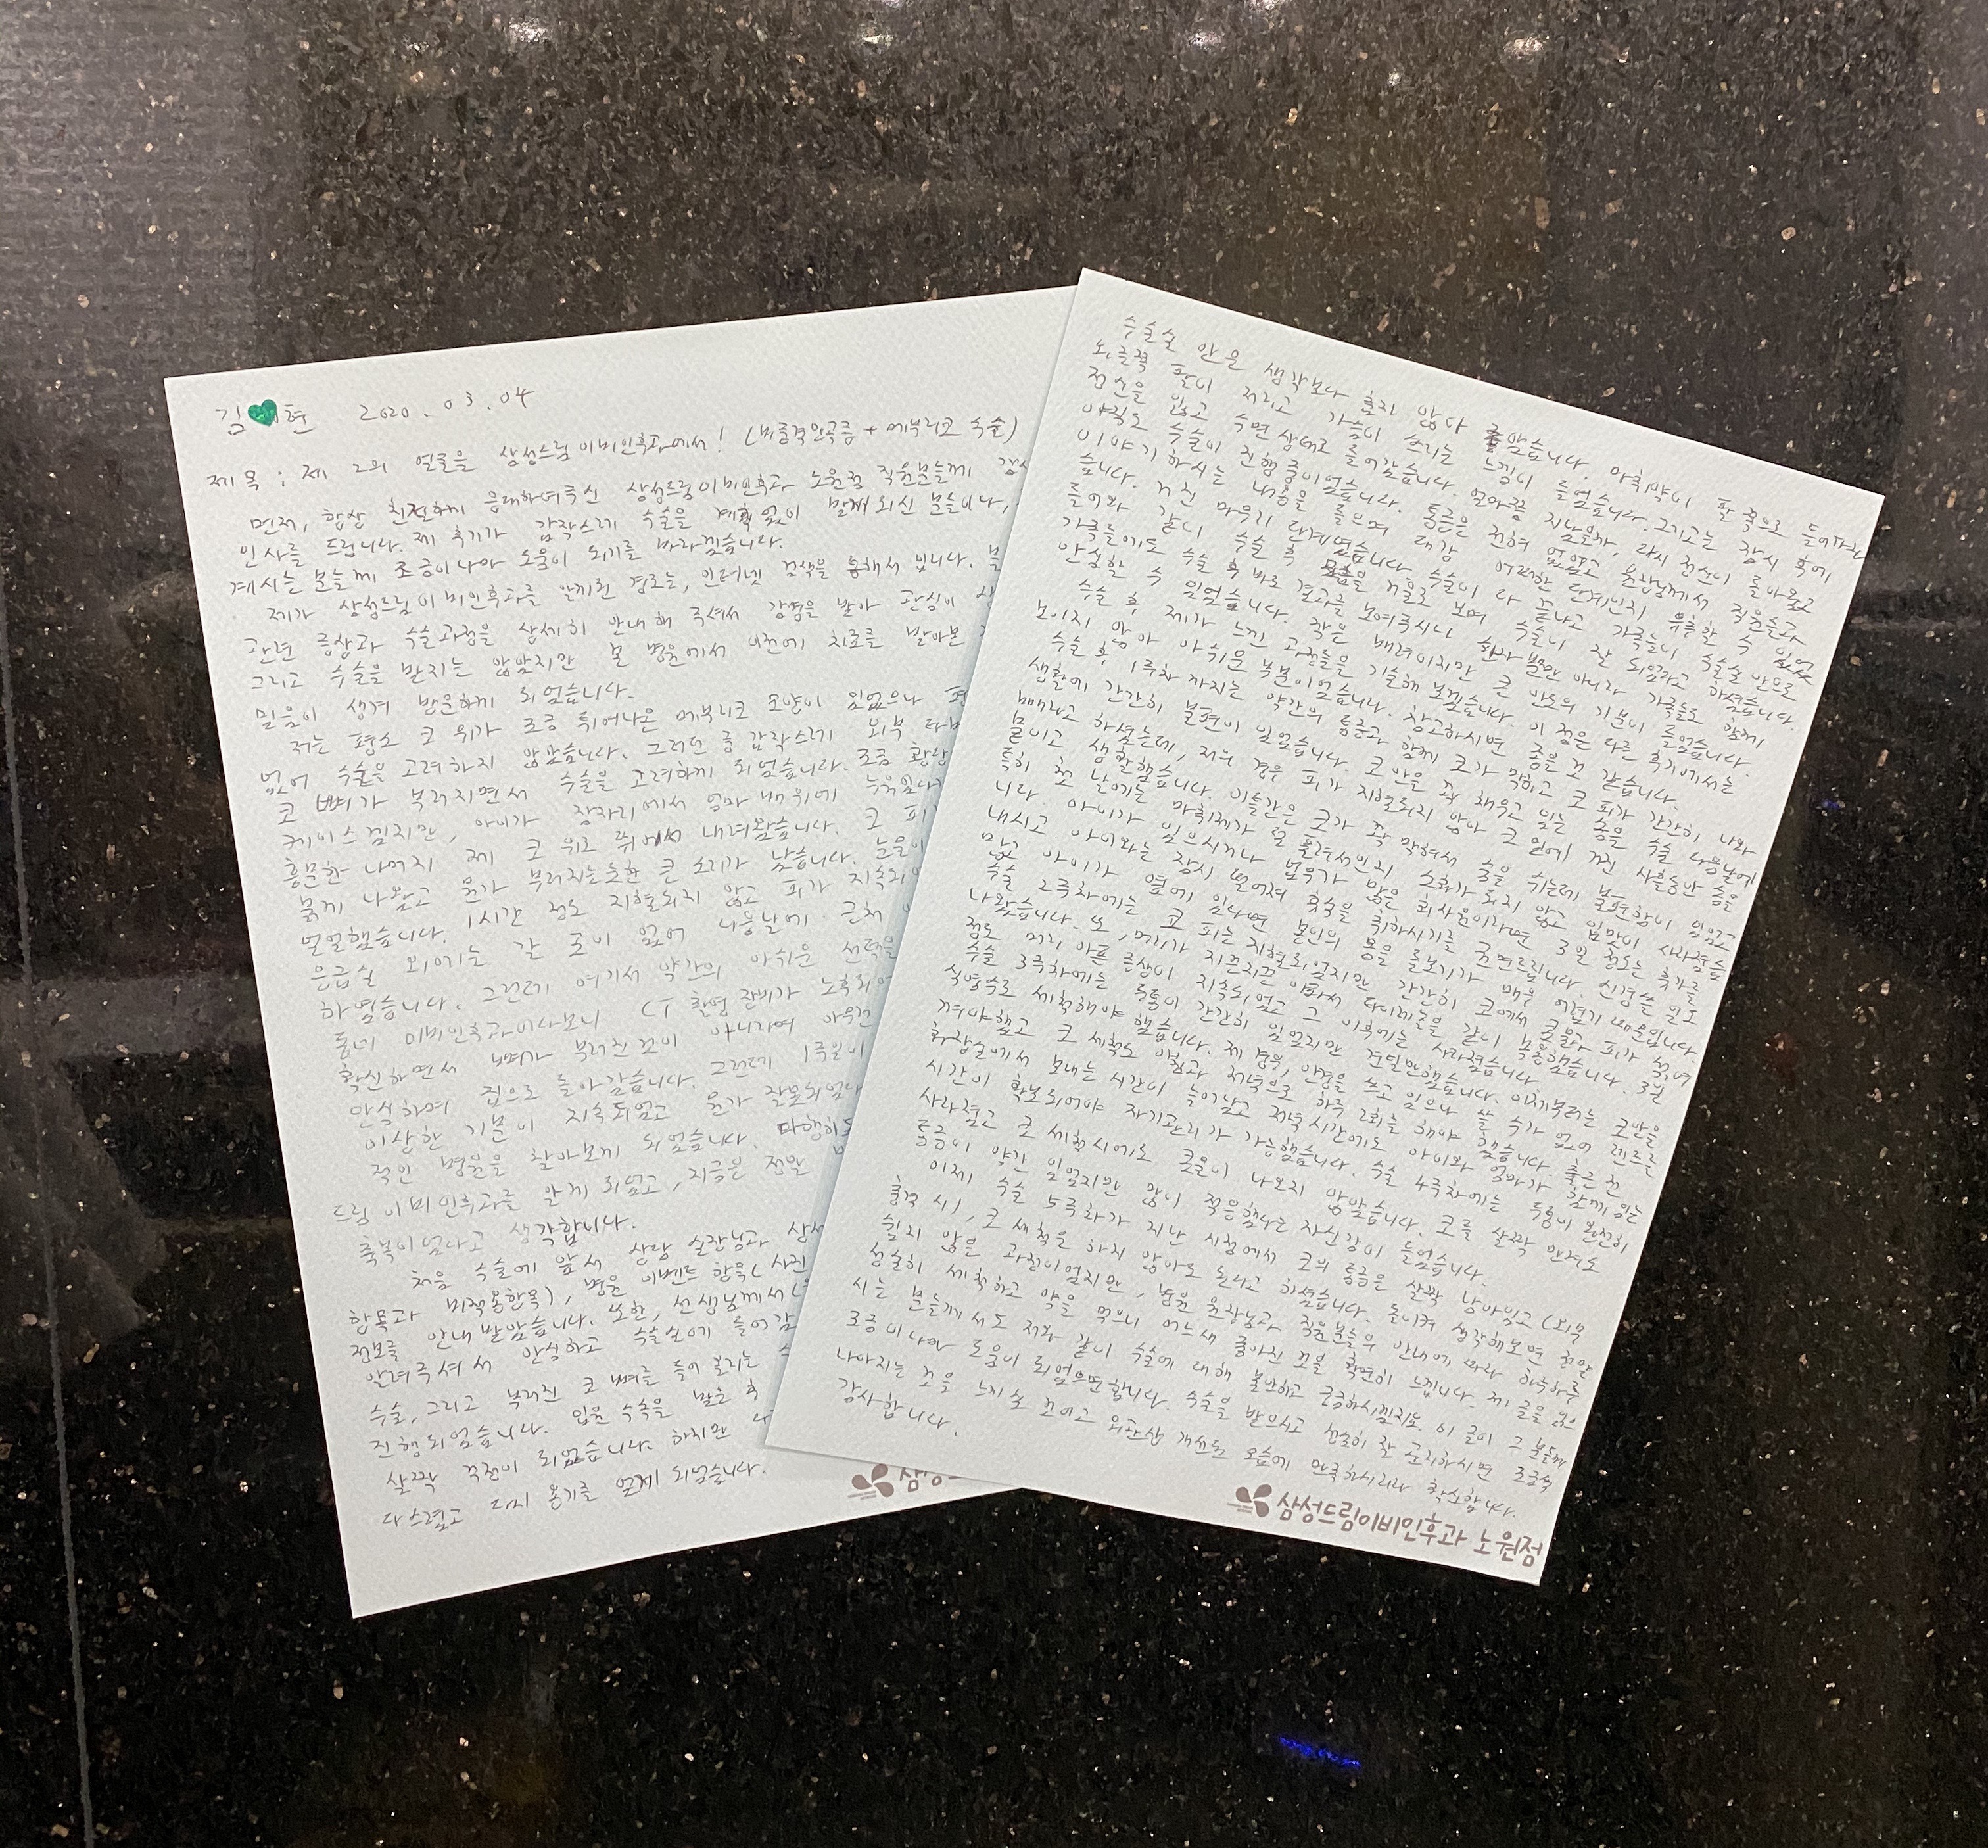 김 현 2020.03.04
제목 : 제 2의 얼굴을 삼성드림이비인후과에서! (비중격만곡증 + 메부리코 수술)
먼저, 항상 친절하게 응대하여주신 삼성드림이비인후과 노원점 직원분들께 감사
인사를 드립니다. 제 후기가 갑작스레 수술을 계획없이 받게되신 분들이나,
계시는 분들께 조금이나마 도움이 되기를 바라겠습니다.
제가 삼성드림이비인후과를 알게된 경로는, 인터넷 검색을 통해서 입니다.
관련 증상과 수술과정을 상세히 안내해 주셔서 감명을 받아 관심이
그리고 수술을 받지는 않았지만 본 병원에서 이전에 치료를 받아본
믿음이 생겨 방문하게 되었습니다.
저는 평소 코 위가 조금 튀어나온 메부리코 모양이 있었으나
없어 수술을 고려하지 않았습니다. 그러던 중 갑작스레 외부
코 뼈가 부러지면서 수술을 고려하게 되었습니다. 조금 황당
케이스겠지만, 아이가 잠자리에서 엄마 배위에 누워있다
흥분한 나머지 제 코 위로 뛰어서 내려왔습니다. 코 피
붉게 나왔고 뭔가 부러지는듯한 큰 소리가 났습니다. 눈물이
얼얼했습니다. 1시간 정도 지혈되지 않고 피가 지속되
응급실 외에는 갈 곳이 없어 다음날에 근처
하였습니다. 그런데 여기서 약간의 아쉬운 선택을
동네 이비인후과이다보니 CT 촬영 장비가 노후되
확신하면서 뼈가 부러진 것이 아니라며 아무런
안심하며 집으로 돌아갔습니다. 그런데 1주일이
이상한 기분이 지속되었고 뭔가 잘못되었다
적인 병원을 찾아보게 되었습니다. 다행히도
드림이비인후과를 알게 되었고, 지금은 정말
축복이었다고 생각합니다.
처음 수술에 앞서 상담 실장님과 상세
항목과 미적용항목), 병원 이벤트 항목(사진
정보를 안내 받았습니다. 또한, 선생님께서
알려주셔서 안심하고 수술실에 들어갔
수술, 그리고 부러진 코 뼈를 들어 올리는
진행되었습니다. 입원 수속을 밟은 후
살짝 걱정이 되었습니다. 하지만
다스렸고 다시 용기를 얻게 되었습니다.
삼성
수술실 안은 생각보다 춥지 않아 좋았습니다. 마취약이 팔 쪽으로 들어가자
오른쪽 팔이 저리고 가슴이 쓰리는 느낌이 들었습니다. 그리고는 잠시 후에
정신을 잃고 수면 상태로 들어갔습니다. 얼마쯤 지났을까, 다시 정신이 돌아왔고
아직도 수술이 진행 중이었습니다. 통증은 전혀 없었고 원장님께서 직원들과
이야기하시는 내용을 들으며 대강 어떠한 단계인지 유추할 수 있었
습니다. 거진 마무리 단계였습니다. 수술이 다 끝나고 가족들이 수술실 안으로
들어와 같이 수술 후 모습을 거울로 보며 수술이 잘 되었다고 하셨습니다.
가족들에도 수술 후 바로 결과를 보여주시니 환자 본인만 아니라 가족들도 함께
안심할 수 있었습니다. 작은 배려이지만 큰 안도의 기분이 들었습니다.
수술 후 제가 느낀 과정들을 기술해 보겠습니다. 이 점은 다른 후기에서는
보이지 않아 아쉬운 부분이었습니다. 참고하시면 좋을 것 같습니다.
수술 후 1주차 까지는 약간의 통증과 함께 코가 막히고 코 피가 간간히 나와
생활에 간간히 불편이 있었습니다. 코 안을 꽉 채우고 있는 솜을 수술 다음날에
빼라고 하셨는데, 저의 경우 피가 지혈되지 않아 코 밑에 거진 사흘동안 솜을
붙이고 생활했습니다. 이틀간은 코가 꽉 막혀서 숨을 쉬는데 불편함이 있었고
특히 첫 날에는 마취제가 덜 풀려서인지 소화가 되지 않고 입맛이 사라졌습
니다. 아이가 있으시거나 업무가 많은 회사원이라면 3일 정도는 휴가를
내시고 아이와는 잠시 떨어져 휴식을 취하시기를 권면드립니다. 신경쓸 일도
많고 아이가 옆에 있다면 본인의 몸을 돌보기가 매우 어렵기 때문입니다.
수술 2주차에는 코 피는 지혈되었지만 간간히 코에서 콧물과 피가 섞여
나왔습니다. 또, 머리가 지끈지끈 아파서 타이레놀을 같이 복용했습니다. 3일
정도 머리 아픈 증상이 지속되었고 그 이후에는 사라졌습니다.
수술 3주차에는 두통이 간간히 있었지만 견딜만했습니다. 이제부터는 코안을
식염수로 세척해야 했습니다. 제 경우, 안경을 쓰고 있으나 쓸 수가 없어 렌즈를
껴야했고 코 세척도 아침과 저녁으로 하루 2회를 해야 했습니다. 출근 전
화장실에서 보내는 시간이 늘어났고 저녁시간에도 아이와 엄마가 함께 있는
시간이 확보되어야 자기관리가 가능했습니다. 수술 4주차에는 두통이 완전히
사라졌고 코 세척시에도 콧물이 나오지 않았습니다. 코를 살짝 만져도
통증이 약간 있었지만 많이 적응했다는 자신감이 들었습니다.
이제 수술 5주차가 지난 시점에서 코의 통증은 살짝 남아있고 (외부
충격 시), 코 세척을 하지 않아도 된다고 하셨습니다. 돌이켜 생각해보면 정말
쉽지 않은 과정이었지만, 병원 원장님과 직원분들의 안내에 따라 하루하루
성실히 세척하고 약을 먹으니 어느새 좋아진 코를 확연히 느낍니다. 제 글을 읽으
시는 분들께서도 저와 같이 수술에 대해 불안하고 궁금하시겠지요. 이 글이 그 분들께
조금이나마 도움이 되었으면합니다. 수술을 받으시고 성실히 잘 관리하시면 조금씩
나아지는 것을 느끼실 것이고 외관상 개선된 모습에 만족하시리라 확신합니다.
감사합니다.
삼성드림이비인후과 노원점